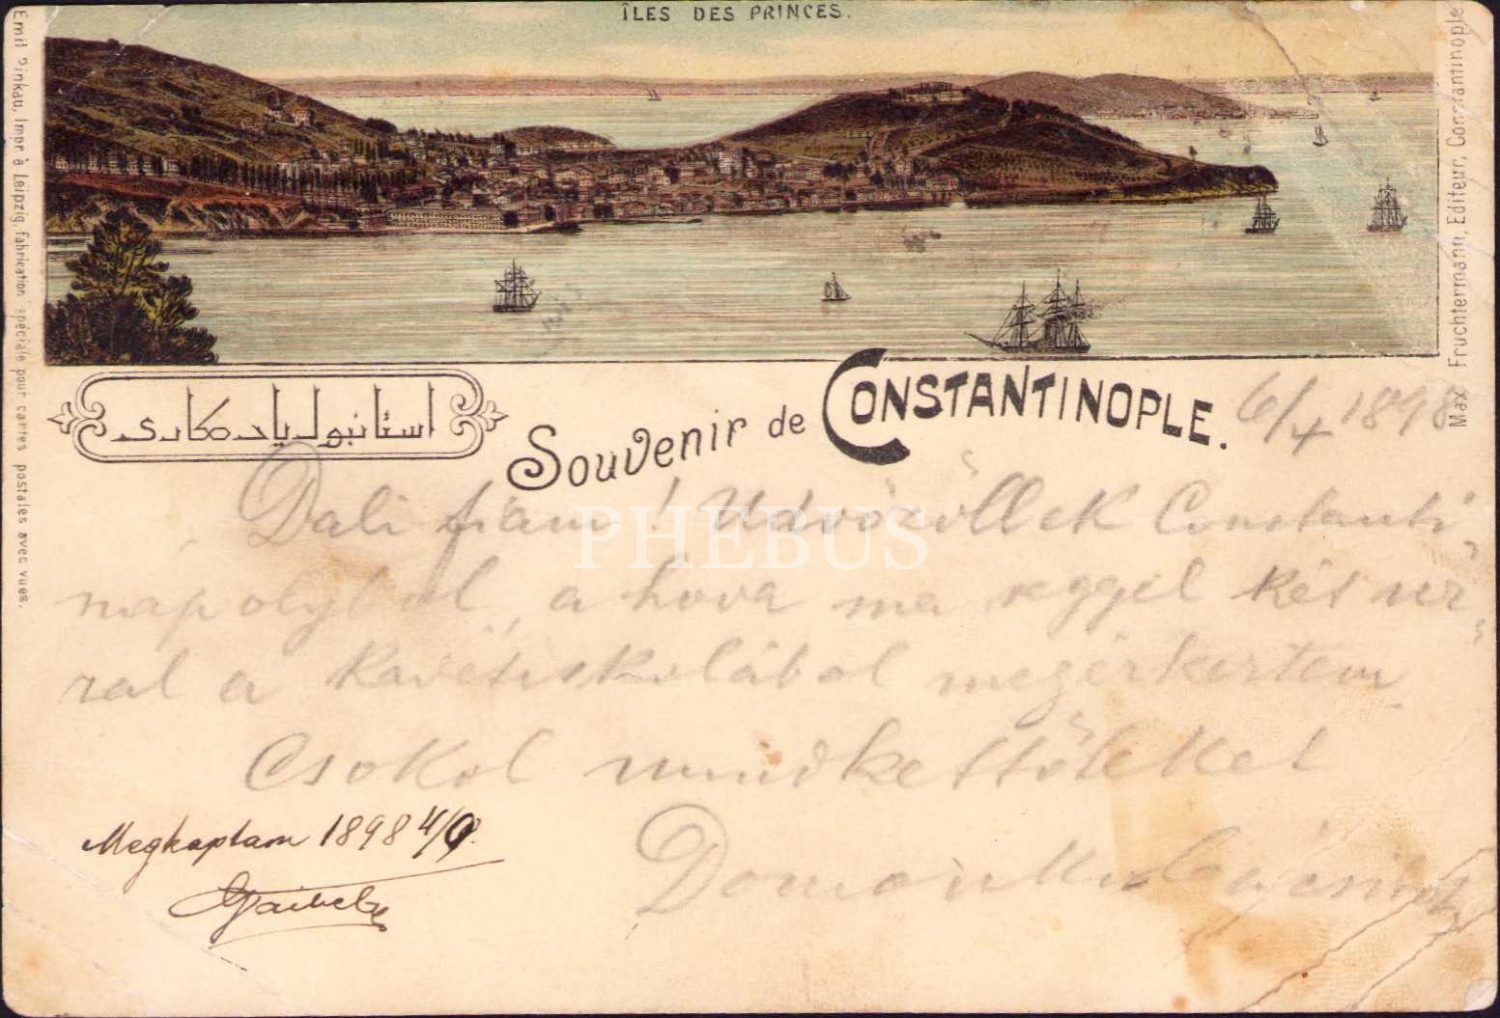 ÎLES DES PRINCES.
Emil Pinkau, Impr. à Leipzig, fabrication spéciale pour cartes postales avec vues.
Max Fruchtermann, Editeur, Constantinople.
استانبول یادكاری
Souvenir de CONSTANTINOPLE.
6/4 1898
Dali fiam! Üdvözöllek Constanti
nápolyból, a hova ma reggel két
ral a megérkeztem
Csokol mindkettőteket
PHEBUS
Megkaptam 1898 4/9.